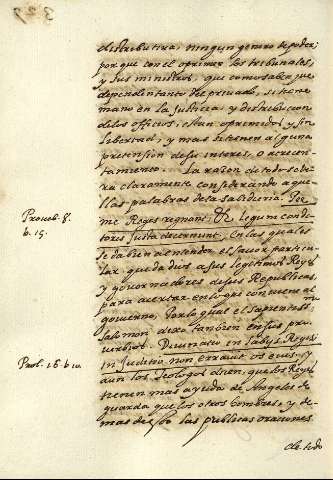 distributiva, ningun genero de poder;
porque con el oprimen los tribunales,
y sus ministros, que como saben que
dependen tanto del privado, si tiene
mano en la Justicia, y distribucion
de los officios, estan oprimidos y sin
libertad, y mas si tienen alguna
pretension de su interes, o acrecen-
tamiento. La raçon de todo se de-
xa claramente considerando aque-
llas palabras de la Sabiduria. Per
Proverb. 8.
me Reyes regnant, & legum condi-
b. 15.
tores iusta decernunt, en las quales
se da bien a entender el favor particu-
lar que da dios a sus legitimos Reyes
y governadores de sus Republicas,
para acertar en lo que conviene al
govierno. Por lo qual el sapientissᵐᵒ
Salomon dixo tanbien en sus pro-
verbios. Divinatio in labiis Regis
Prol. 16. b. 10.
in Juditio non errauit os eius, y
aun los Teologos dicen, que los Reyes
tienen mas ayuda de Angeles de
guarda que los otros hombres, y de-
mas de esto las publicas oraciones
de todo